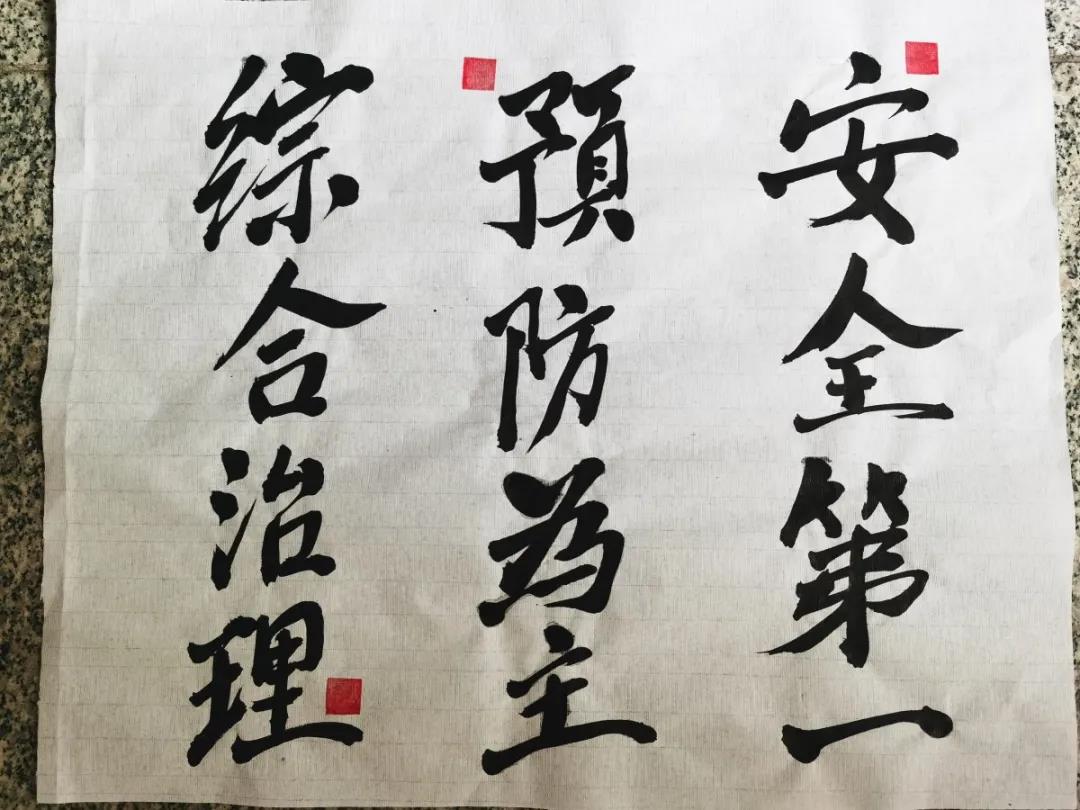 安全第一
預防為主
綜合治理